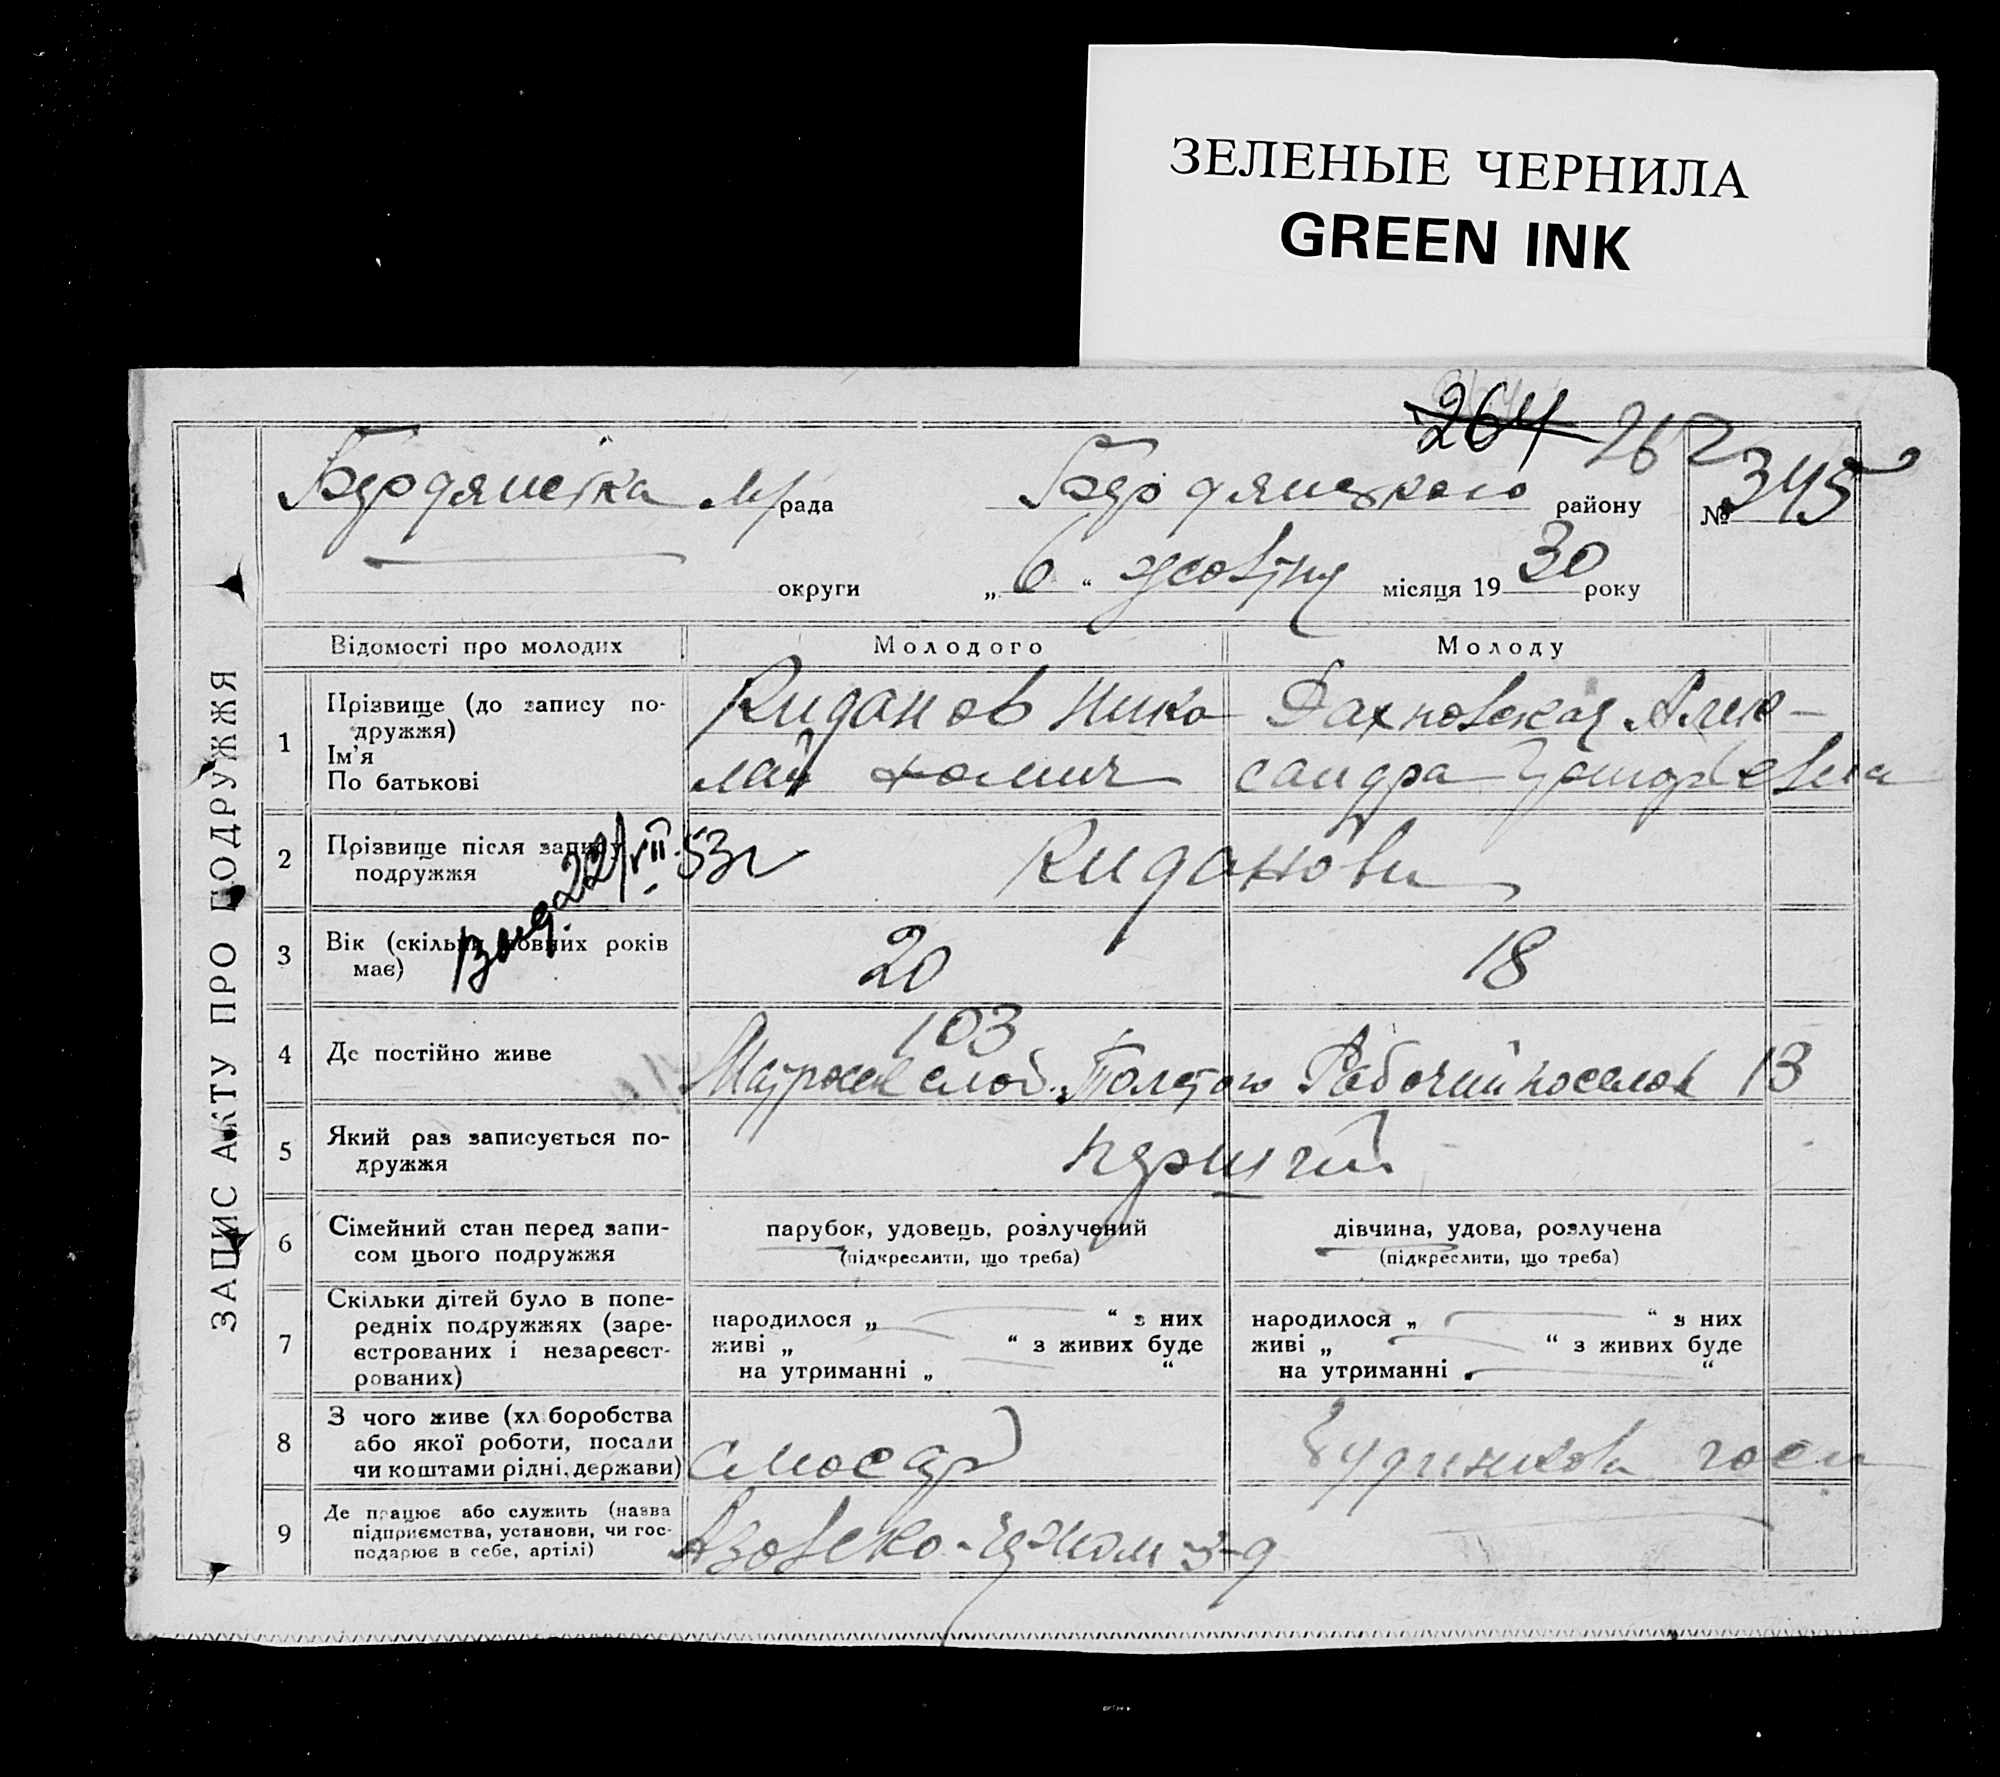 ЗЕЛЕНЫЕ ЧЕРНИЛА
GREEN INK
264 262
Бердянська м/рада Бердянського району № 345
округи „ 6 “ жовтня місяця 19 30 року
ЗАПИС АКТУ ПРО ПОДРУЖЖЯ
Відомості про молодих Молодого Молоду
1 Прізвище (до запису по-
дружжя)
Ім'я
По батькові
Киданов Нико-
лай Фомич
Дахновская Алек-
сандра Григорьевна
2 Прізвище після запису
подружжя
Киданови
22/VII-53г
3 Вік (скільки повних років
має)
20 18
4 Де постійно живе
103
слоб. Толстого Рабочий поселок 13
5 Який раз записується по-
дружжя
перший
6 Сімейний стан перед запи-
сом цього подружжя
парубок, удовець, розлучений
(підкреслити, що треба)
дівчина, удова, розлучена
(підкреслити, що треба)
7 Скільки дітей було в попе-
редніх подружжях (заре-
єстрованих і незареєст-
рованих)
народилося „ “ з них
живі „ “ з живих буде
на утриманні „ “
народилося „ “ з них
живі „ “ з живих буде
на утриманні „ “
8 З чого живе (хл.боробства
або якої роботи, посади
чи коштами рідні, держави)
слюсар
9 Де працює або служить (назва
підприємства, установи, чи гос-
подарює в себе, артілі)
Азовско-Черном з-д